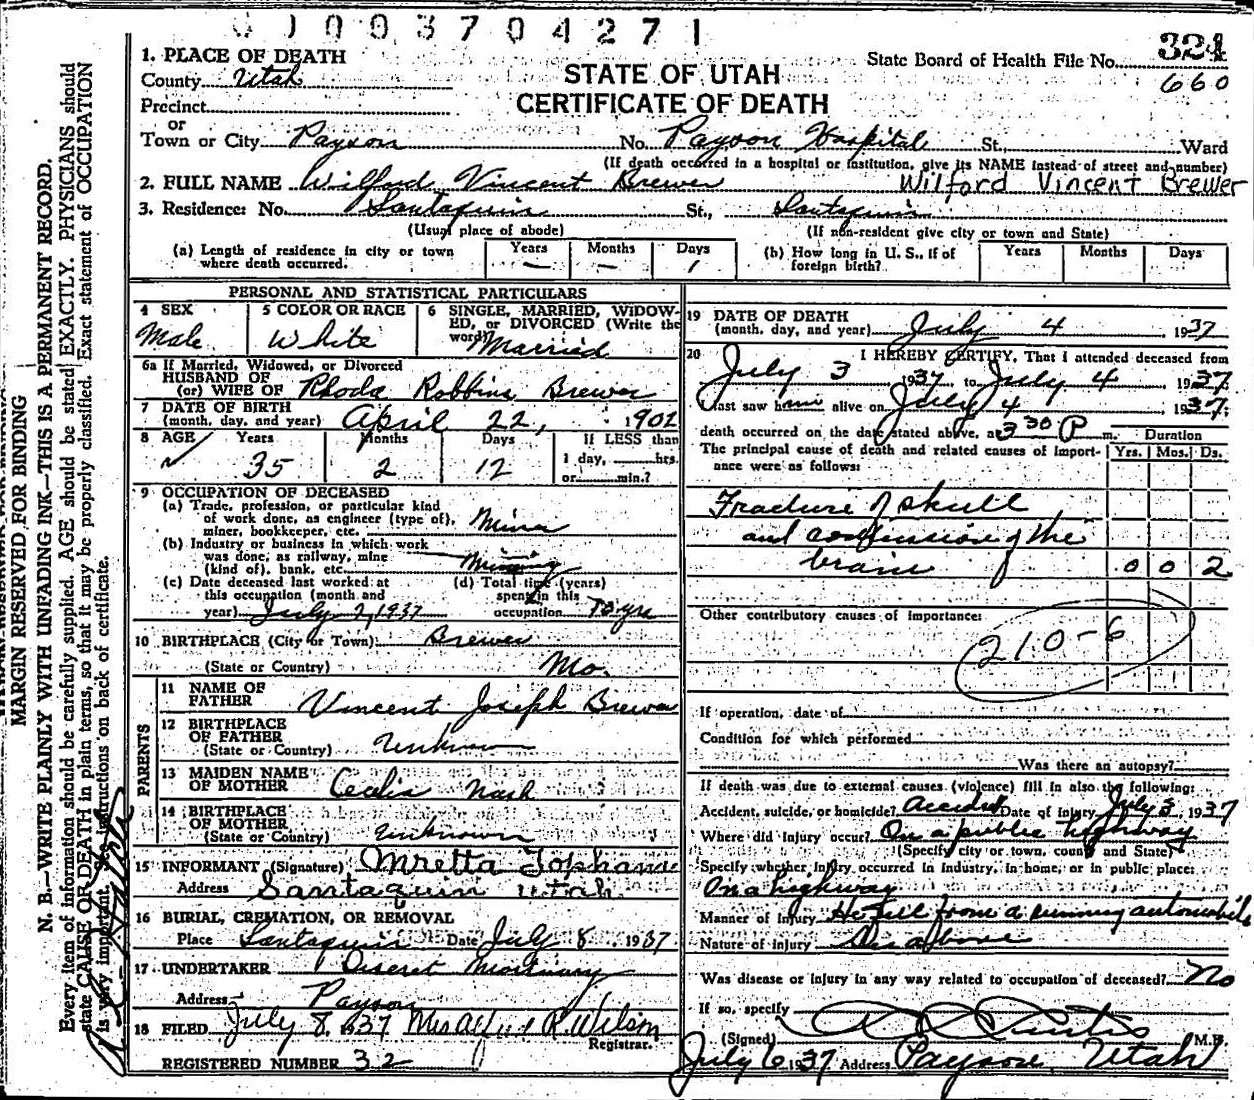 0 0 0 9 3 7 0 4 2 7 1
State Board of Health File No. 324
660
STATE OF UTAH
CERTIFICATE OF DEATH
1. PLACE OF DEATH
County Utah
Precinct
or
Town or City Payson No. Payson Hospital St., Ward
(If death occurred in a hospital or institution, give its NAME instead of street and number)
2. FULL NAME Wilford Vincent Brewer Wilford Vincent Brewer
3. Residence: No. Santaquin St., Santaquin
(Usual place of abode) (If non-resident give city or town and State)
(a) Length of residence in city or town where death occurred. Years — Months — Days 1
(b) How long in U. S., if of foreign birth? Years Months Days
PERSONAL AND STATISTICAL PARTICULARS
4 SEX Male
5 COLOR OR RACE White
6 SINGLE, MARRIED, WIDOWED, or DIVORCED (Write the word) Married
6a If Married, Widowed, or Divorced
HUSBAND OF
(or) WIFE OF Rhoda Robbins Brewer
7 DATE OF BIRTH
(month, day, and year) April 22, 1902
8 AGE Years 35 Months 2 Days 12 If LESS than 1 day, hrs. or min.?
9 OCCUPATION OF DECEASED
(a) Trade, profession, or particular kind
of work done, as engineer (type of),
miner, bookkeeper, etc. Miner
(b) Industry or business in which work
was done, as railway, mine
(kind of), bank, etc. Mining
(c) Date deceased last worked at
this occupation (month and
year) July 2, 1937
(d) Total time (years)
spent in this
occupation yrs
10 BIRTHPLACE (City or Town) Brewer
(State or Country) Mo.
PARENTS
11 NAME OF
FATHER Vincent Joseph Brewer
12 BIRTHPLACE
OF FATHER
(State or Country) Unknown
13 MAIDEN NAME
OF MOTHER Cecelia Nash
14 BIRTHPLACE
OF MOTHER
(State or Country) Unknown
15 INFORMANT (Signature) Mretta Topham
Address Santaquin Utah
16 BURIAL, CREMATION, OR REMOVAL
Place Santaquin Date July 8 1937
17 UNDERTAKER Deseret Mortuary
Address Payson
18 FILED July 8, 1937 Mrs Alfred R. Wilson
Registrar.
REGISTERED NUMBER 32
19 DATE OF DEATH
(month, day, and year) July 4 1937
20 I HEREBY CERTIFY, That I attended deceased from
July 3 1937 to July 4 1937
I last saw him alive on July 4 1937;
death occurred on the date stated above, at 3 30 P m.
Duration
The principal cause of death and related causes of importance were as follows: Yrs. Mos. Ds.
Fracture of skull
and contusion of the
brain 0 0 2
Other contributory causes of importance:
210-6
If operation, date of
Condition for which performed
Was there an autopsy?
If death was due to external causes (violence) fill in also the following:
Accident, suicide, or homicide? Accident Date of injury July 3, 1937
Where did injury occur? On a public highway
(Specify city or town, county and State)
Specify whether injury occurred in industry, in home, or in public place:
On a highway
Manner of Injury He fell from a running automobile
Nature of Injury As above
Was disease or injury in any way related to occupation of deceased? No
If so, specify
(Signed) Curtis M.D.
July 6 1937 Address Payson Utah
MARGIN RESERVED FOR BINDING
N. B.—WRITE PLAINLY WITH UNFADING INK—THIS IS A PERMANENT RECORD.
Every item of information should be carefully supplied. AGE should be stated EXACTLY. PHYSICIANS should
state CAUSE OR DEATH in plain terms, so that it may be properly classified. Exact statement of OCCUPATION
is very important. instructions on back of certificate.